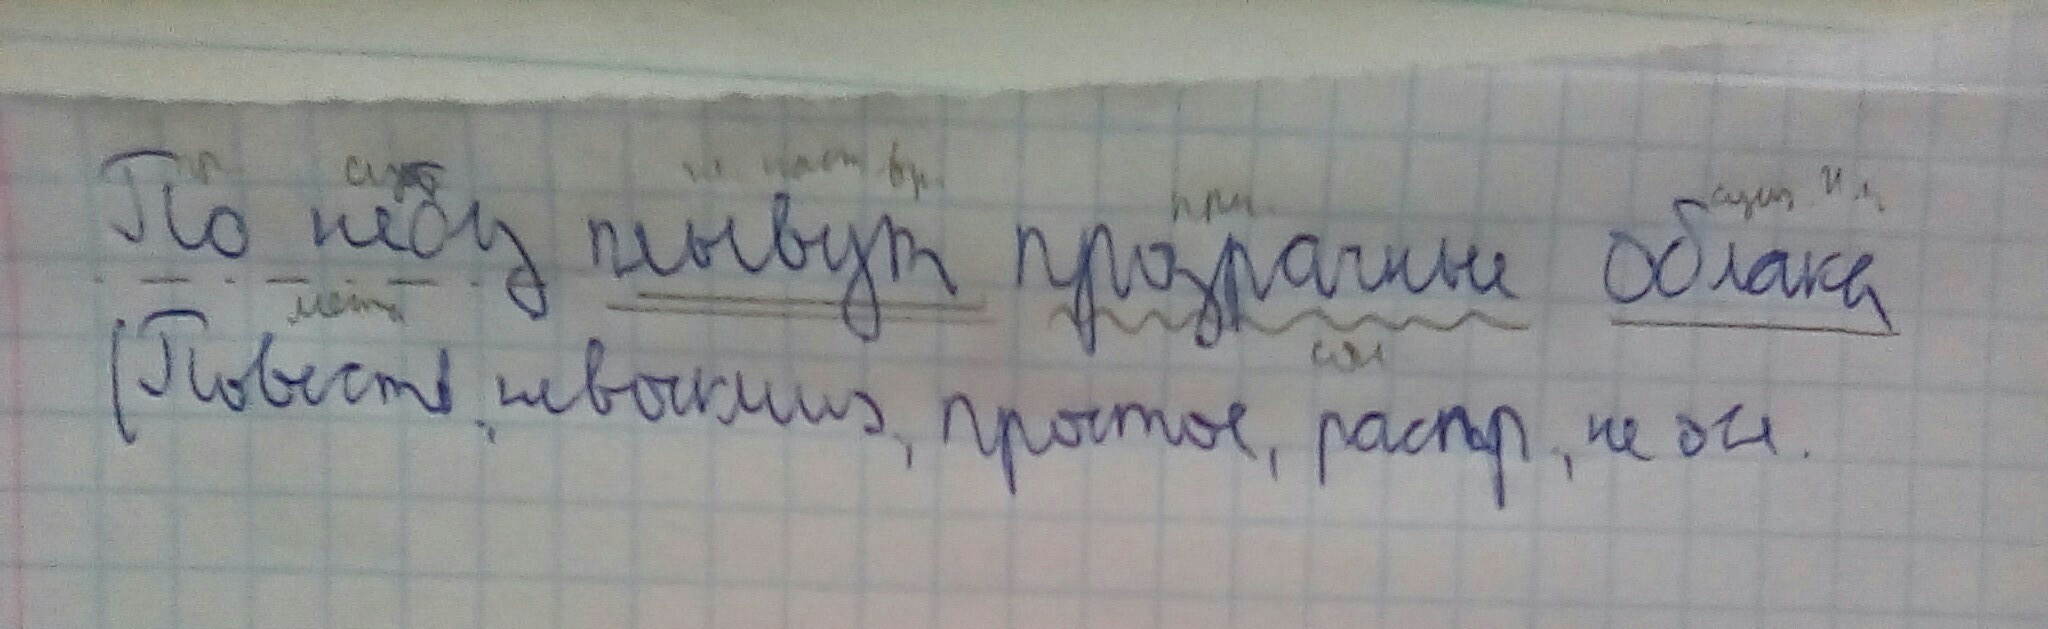 пр. сущ. гл. наст вр. прил. сущ. И.п.
По небу плывут прозрачные облака
места
(Повеств., невосклиц, простое, распр., не осл.